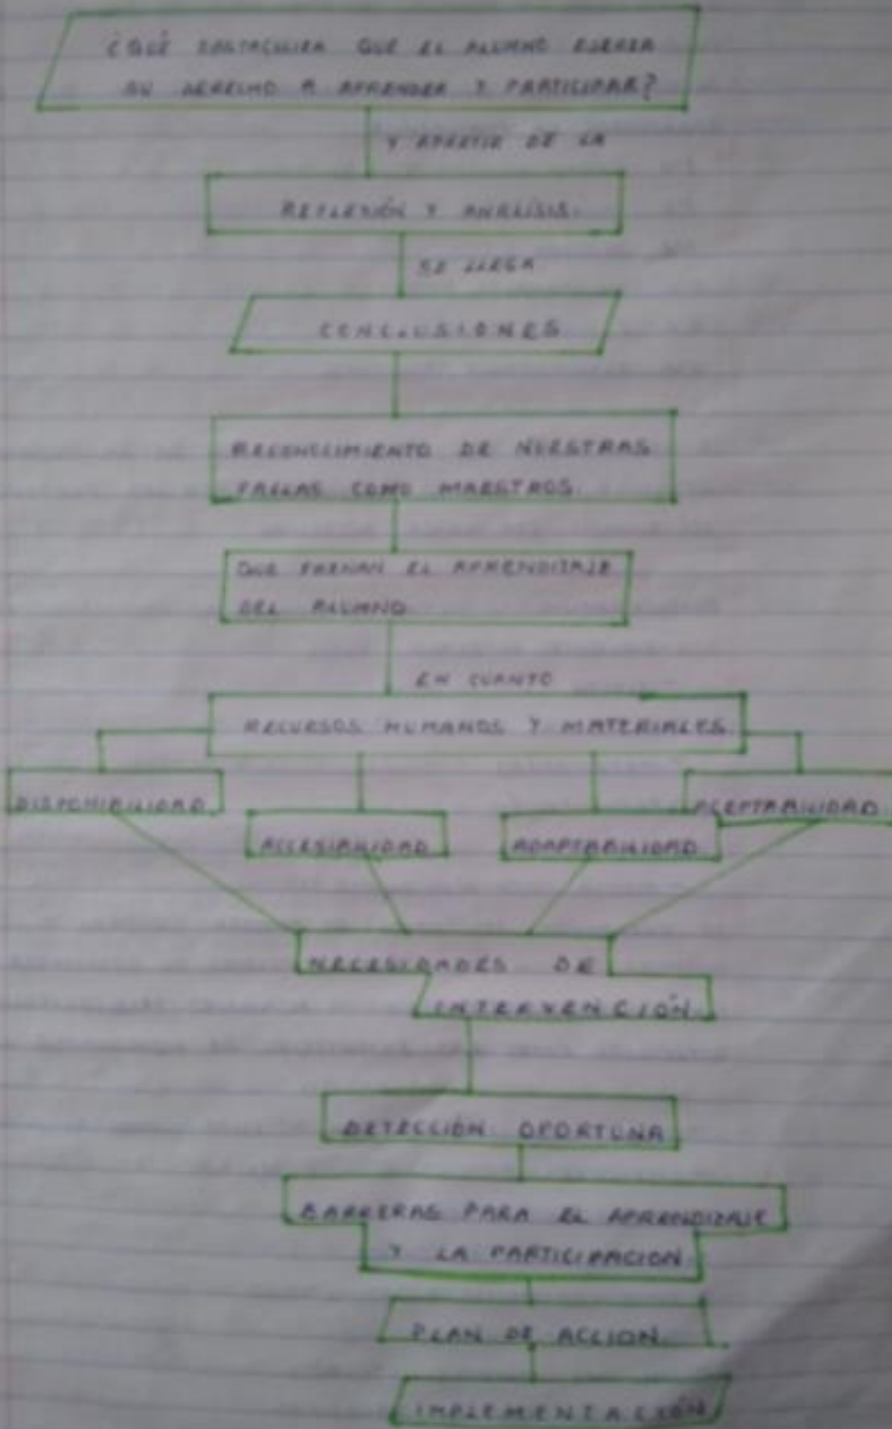 ¿QUÉ OBSTACULIZA QUE EL ALUMNO EJERZA
SU DERECHO A APRENDER Y PARTICIPAR?
Y APARTIR DE LA
REFLEXIÓN Y ANÁLISIS.
SE LLEGA
CONCLUSIONES
RECONOCIMIENTO DE NUESTRAS
FALLAS COMO MAESTROS.
QUE FRENAN EL APRENDIZAJE
DEL ALUMNO
EN CUANTO
RECURSOS HUMANOS Y MATERIALES.
DISPONIBILIDAD.
ACCESIBILIDAD
ADAPTABILIDAD.
ACEPTABILIDAD.
NECESIDADES DE
INTERVENCIÓN.
DETECCIÓN OPORTUNA
BARRERAS PARA EL APRENDIZAJE
Y LA PARTICIPACION.
PLAN DE ACCION.
IMPLEMENTACIÓN